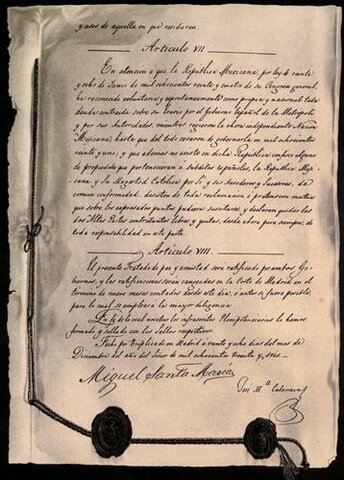 y usos de aquella en que residieren.
Articulo VII
En atencion a que la Republica Mexicana, por ley de veinte
y ocho de Junio de mil ochocientos veinte y cuatro de su Congreso general,
ha reconocido voluntaria y espontaneamente como propia y nacional toda
deuda contraida sobre su Erario por el Gobierno Español de la Metropoli
y por sus Autoridades, mientras rigieron la ahora independiente Nacion
Mexicana; hasta que del todo cesaron de gobernarla en mil ochocientos
veinte y uno; y que ademas no existe en dicha República confisco alguno
de propiedad que perteneciera a Subditos españoles, la Republica Mexi-
cana, y Su Magestad Católica por sí y sus herederos y sucesores, de
comun conformidad, desisten de toda reclamacion o pretension mutua
que sobre los expresados puntos pudiera suscitarse, y declaran quedar las
dos Altas Partes contratantes libres y quitas, desde ahora para siempre, de
toda responsabilidad en esta parte.
Articulo VIII.
El presente Tratado de paz y amistad será ratificado por ambos Go-
biernos, y las ratificaciones serán cangeadas en la Corte de Madrid en el
termino de nueve meses contados desde este dia, o antes si fuere posible,
para lo cual se empleará la mayor diligencia.
En fé de lo cual nosotros los infrascritos Plenipotenciarios lo hemos
firmado y sellado con los Sellos respectivos.
Fecho por triplicado en Madrid a veinte y ocho dias del mes de
Diciembre del año del Señor de mil ochocientos treinta y seis.
Miguel Santa María
José M.ª Calatrava